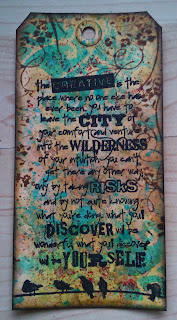 the CREATIVE is the
place where no one else has
ever been. you have to
leave the CITY of
your comfort and venture
into the WILDERNESS
of your intuition. you can't
get there any other way.
only by taking RISKS
and by not quite knowing
what you're doing. what you'll
DISCOVER will be
wonderful. what you'll discover
will be YOURSELF